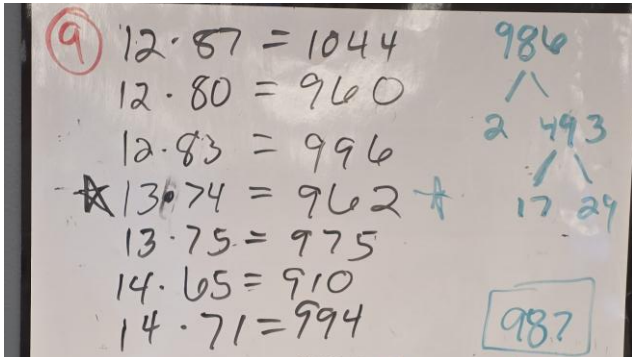 9
12 · 87 = 1044
12 · 80 = 960
12 · 83 = 996
☆ 13 · 74 = 962 ☆
13 · 75 = 975
14 · 65 = 910
14 · 71 = 994
986
2 493
17 29
987